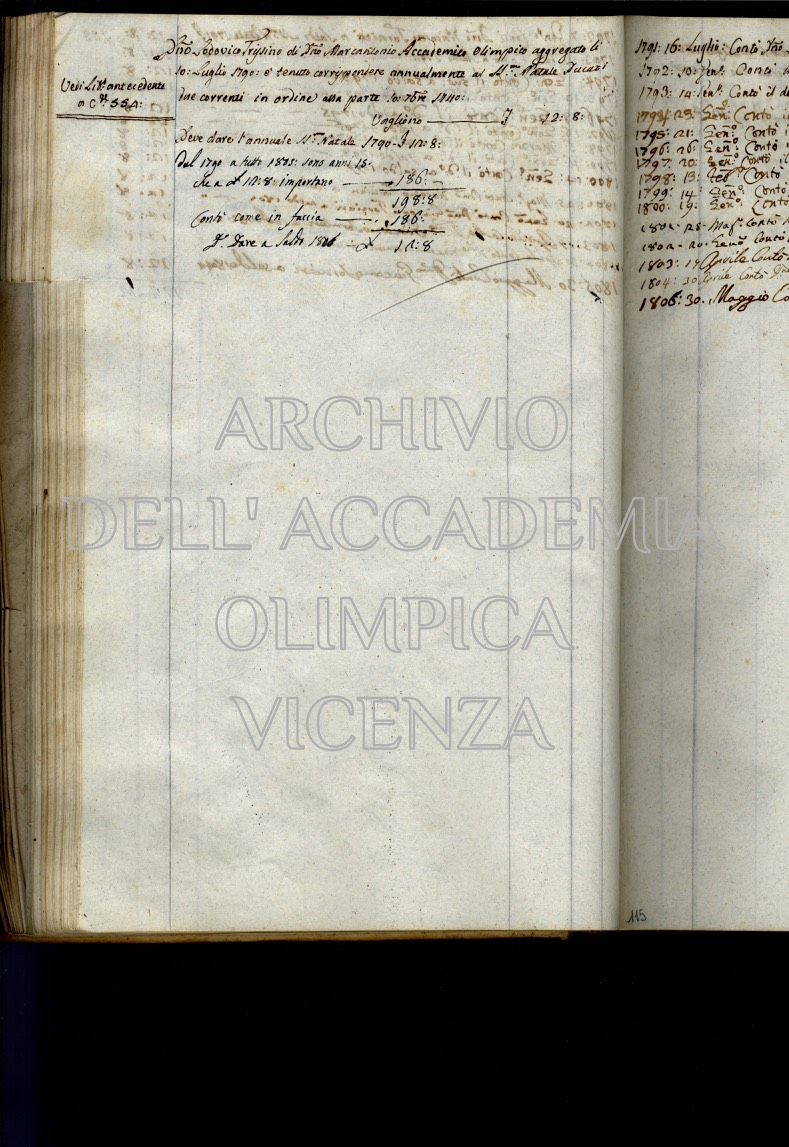 Vedi Lib.º antecedente
a C.te 554:
Dño Lodovico Trissino di Dño Marcantonio Accademico Olimpico aggregato li
10: Luglio 1790: è tenuto corrispondere annualmente al SS.mo Natale Ducati
due correnti in ordine alla parte 10: 7bre 1740:
Vagliono 12: 8:
Deve dare l'annuale SS.mo Natale 1790 12: 8:
Dal 1790 a tutto 1805: sono anni 15:
che a 12: 8: importano 186:
198:8
Contò come in faccia 186:
Dare a Saldo 1806 12:8
1791: 16: Luglio: Contò Dño
1792: 10: Gen.º Contò
1793: 14: Gen.º Contò il
1794: 23: Gen.º Contò
1795: 21: Gen.º Contò
1796: 26: Gen.º Contò
1797: 20: Gen.º Contò il
1798: 13: Feb.º Contò
1799: 14: Gen.º Contò
1800: 19: Gen.º Contò
1801: 25: Mag.º Contò
1802: 20: Gen.º Contò
1803: 17 Aprile Contò
1804: 30 Aprile Contò
1806: 30. Maggio
115
ARCHIVIO
DELL' ACCADEMIA
OLIMPICA
VICENZA